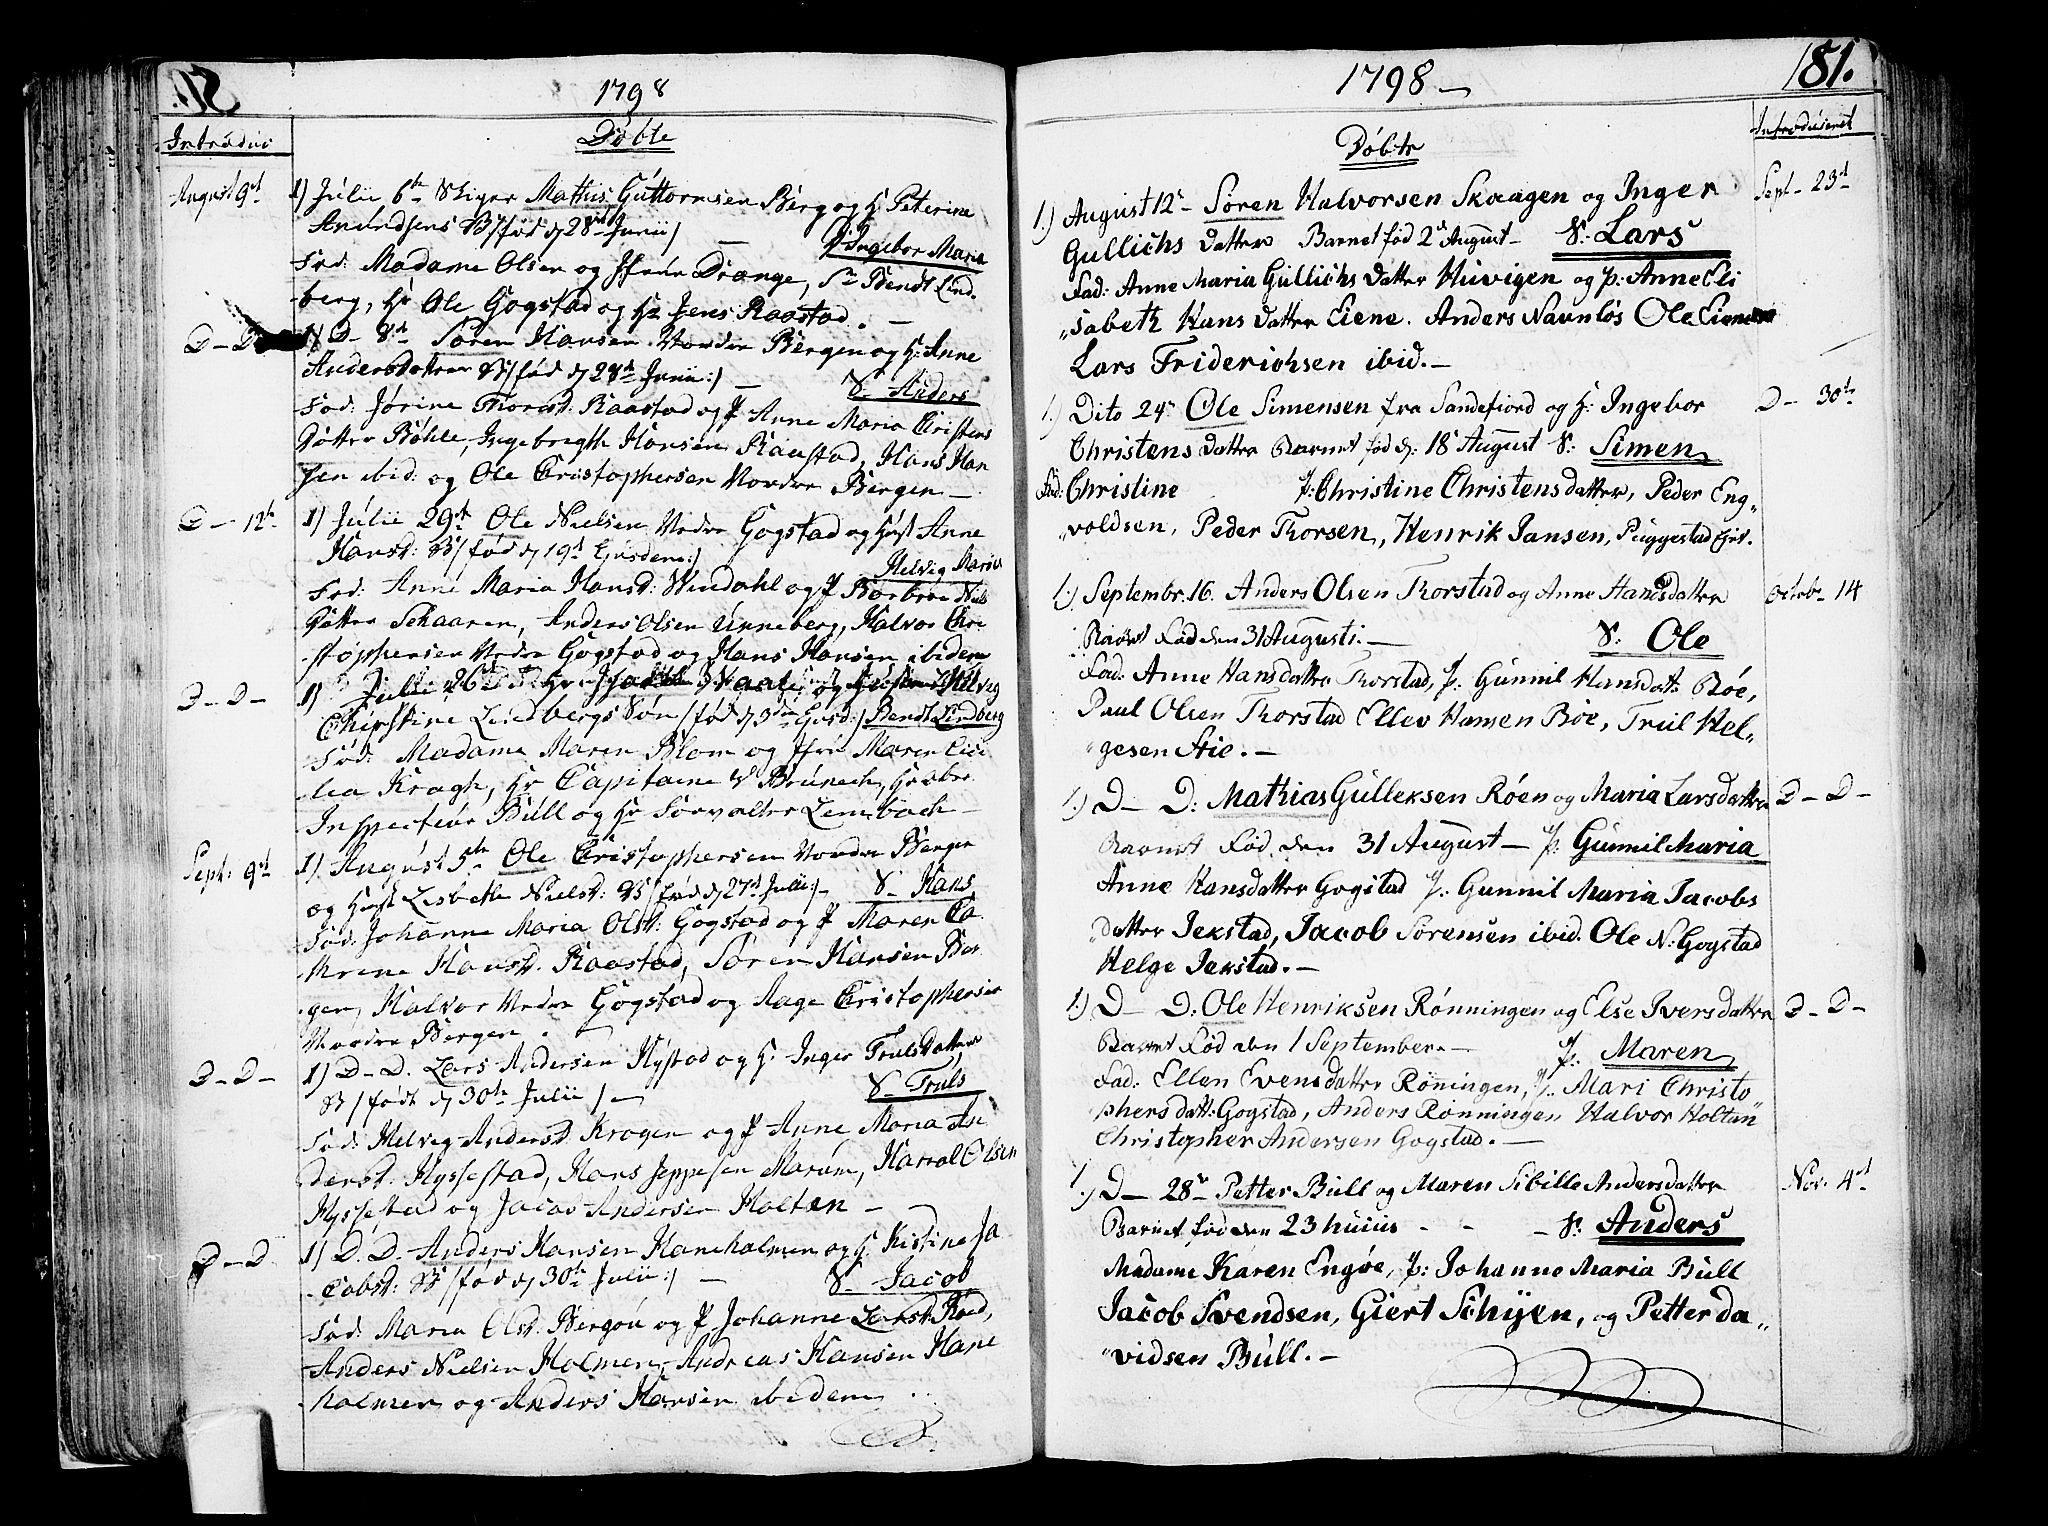 1798
Døbte
Introduc
August 9de
1) Julii 6te Skiper Mathis Guttormsen Berg og H. Peterine
Amundsens B/ fød d 28de Junii/ — P Ingebor Maria
Fad: Madame Olsen og Jfrue Drange, Sr Bendt Lind-
berg, Hr Ole Gogstad og Hr Jens Raastad. —
D — D
1) D — 8de Søren Hansen Nordre Bergen og H: Anne
Andersdatter B/ fød d 28de Junii:/ — S. Anders
Fad: Jørine Thorsd: Raastad og P Anne Maria Cristens
Datter Bøhle, Ingebregth Hansen Raastad, Hans Han
sen ibid: og Ole Cristophersen Nordre Bergen —
D — 12te
1) Julii 29de Ole Nielsen Nedre Gogstad og Hust Anne
Hansd: B/ fød d 19de Ejusdem:/ Helvig Maria
Fad: Anne Maria Hansd: Windahl og P Barbroe Niels
Datter Schaaren, Anders Olsen Unneberg, Halvor Chri-
stophersen Nedre Gogstad og Hans Hansen ibidem
D — D —
1) Julii 26 Hr Vaale og Helvig
Christine Lindbergs Søn / fød d 3die Ejusd:/ Bendt Lindberg
Fad: Madame Maren Blom og Jfru Maren Ceci
lia Kragh, Hr Capitaine V Brunech, Hr
Inspecteur Bull og Hr Forvalter Lembach —
Sept: 9de
1) August 5te Ole Cristophersen Nordre Bergen
og Hust Lisbeth Nielsd: B/ fød d 27de Julii:/ — S — Hans
Fad: Johanne Maria Olsd: Gogstad og P Maren Ca
thrine Hansd. Raastad, Søren Hansen Ber
gen, Halvor Nedre Gogstad og Aage Cristophersen
Nordre Bergen. —
D — D —
1) D — D. Lars Andersen Hystad og H. Inger TrulsDatter
B / født d 30te Julii / — S — Truls
Fad: Helvig Andersd. Krogen og P Anne Maria An
dersd: Hyssestad, Hans Jeppesen Marum, Harral Olsen
Hyssestad og Jacob Andersen Holtan — —
D — D
1) D. D. Anders Hansen Haneholmen og H. Kistine Ja
cobsd: B / fød d 30te Julii:/ — S — Jacob
Fad: Maria Olsd. Bergan og P Johanne Larsd: Røed,
Anders Nielsen Holmen, Andreas Hansen Hane
holmen og Anders Hansen ibidem
1798 —
181.
Døbte
Introduceret
1.) August 12te Søren Halvorsen Skaagen og Inger
Sept — 23de
Gullichs datter Barnet fød 2de August — S: Lars
Fad: Anne Maria Gullichs datter Huvigen og p: Anne Eli
sabeth Hans datter Eiene. Anders Navnløs Ole Eiene
Lars Friderichsen ibid. —
1.) Dito 24de Ole Simensen fra Sandefiord og H: Ingebor
D — 30te
Christens datter Barnet fød d: 18 August S: Simen
Fad: Christine P: Christine Christensdatter, Peder Eng-
voldsen, Peder Thorsen, Henrik Jansen, Puggestad
1.) Septembr. 16. Anders Olsen Thorstad og Anne Hansdatter
Octob — 14
Barnet Fød den 31 Augusti. — S: Ole
Fad: Anne Hansdatter Thorstad, P: Gunnil Hansdat: Bøe,
Paul Olsen Thorstad Ellev Hansen Bøe, Trul Hel-
gesen Stie. —
1.) D — D: Mathias Gulleksen Røen og Maria Larsdatter
D — D —
Barnet Fød den 31 August — P: Gunnil Maria
Anne Hansdatter Gogstad P: Gunnil Maria Jacobs
datter Jekstad, Jacob Sørensen ibid. Ole N: Gogstad
Helge Jekstad. —
1.) D — D: Ole Henriksen Rønningen og Else Iversdatter
D — D —
Barnet Fød den 1 September. — P: Maren
Fad: Ellen Evensdatter Røningen, P: Mari Christo
phersdatt: Gogstad, Anders Rønningen Halvor Holtan
Christopher Andersen Gogstad. —
1.) D — 28de Petter Bull og Maren Sibille Andersdatter
Nov: 4de
Barnet fød den 23 huius — S: Anders
Madame Karen Engøe, P: Johanne Maria Bull
Jacob Svendsen, Giert Schyen, og Petter Da
vidsen Bull. —